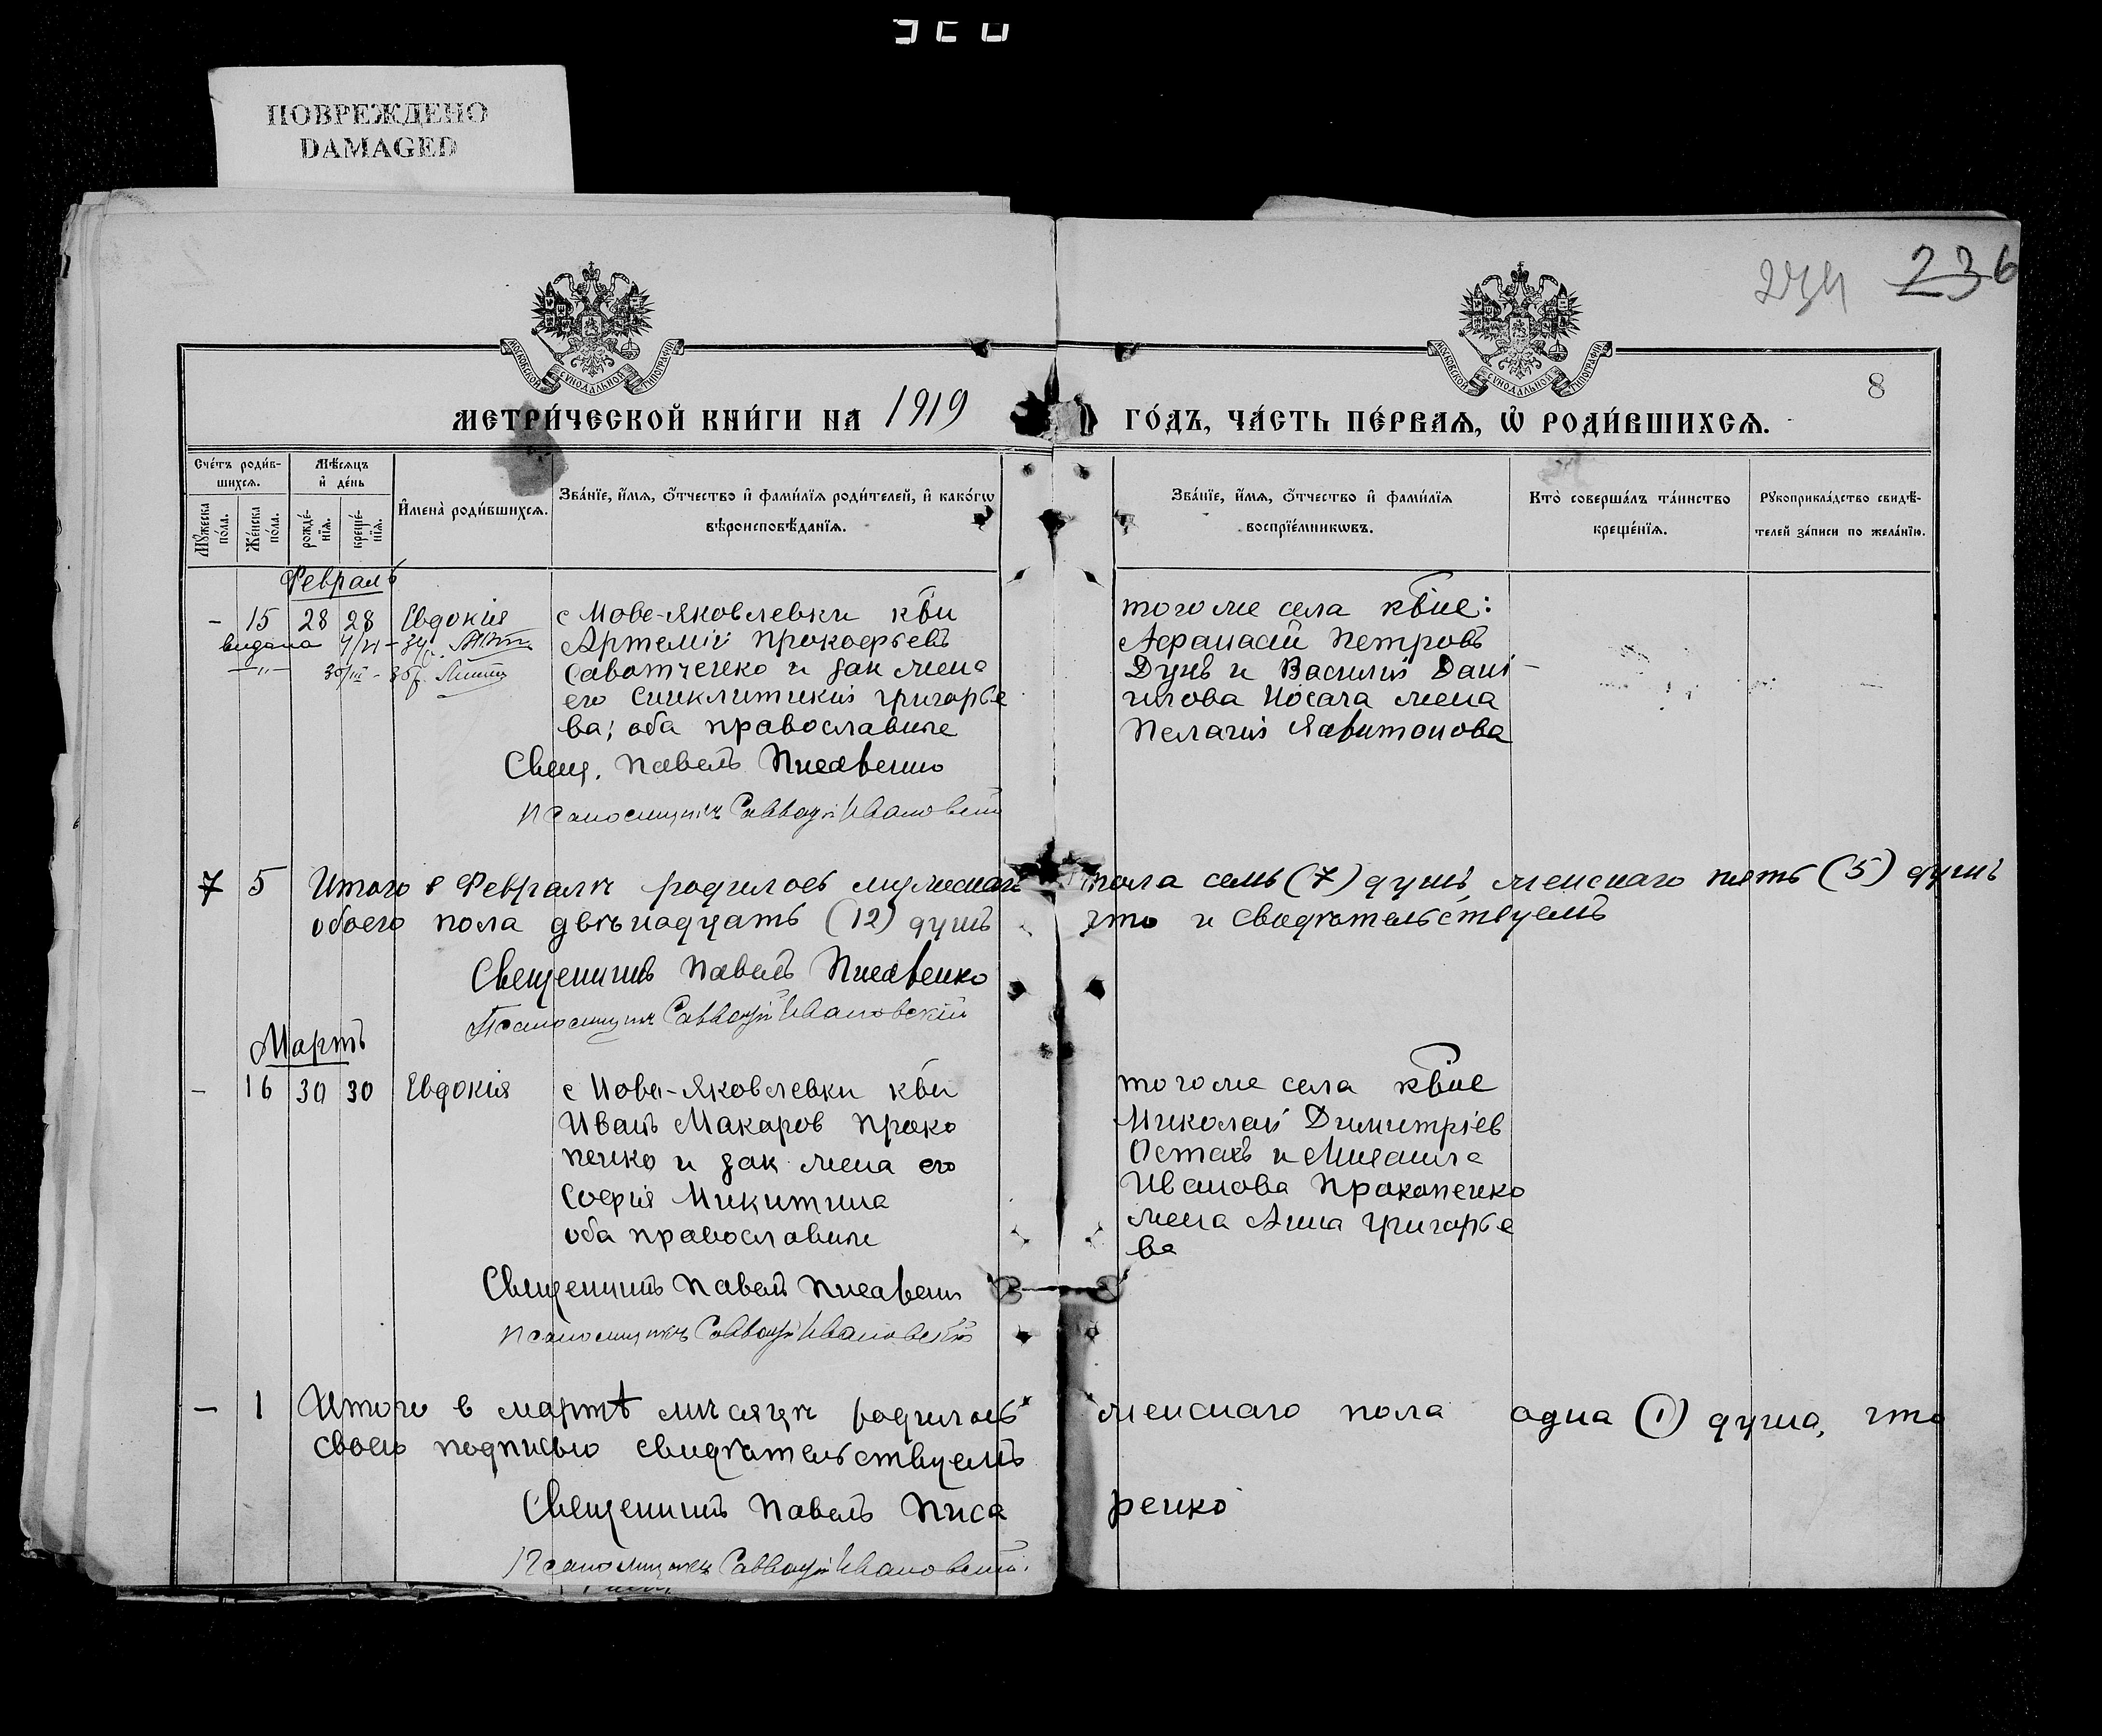 ПОВРЕЖДЕНО
DAMAGED
236
8
МОСКОВСКОЙ СУНОДАЛЬНОЙ ТИПОГРАФІИ
МОСКОВСКОЙ СУНОДАЛЬНОЙ ТИПОГРАФІИ
МЕТРИ́ЧЕСКОЙ КНИ́ГИ НА 1919 ГО́ДЪ, ЧА́СТЬ ПЕ́РВАѦ, Ѡ҆ РОДИ́ВШИХСѦ.
Сче́тъ роди́в-
шихсѧ.
Мѣсѧцъ
и҆ де́нь
Мꙋ́жеска
по́ла.
Же́нска
по́ла.
рожде́-
нїѧ.
креще́-
нїѧ.
И҆мена̀ роди́вшихсѧ.
Зва́нїе, и҆́мѧ, ѻ҆́тчество и҆ фами́лїѧ роди́телей, и҆ како́гѡ
вѣроисповѣ́данїѧ.
Зва́нїе, и҆́мѧ, ѻ҆́тчество и҆ фами́лїѧ
воспрїе́мникѡвъ.
Кто̀ соверша́лъ та́инство
креще́нїѧ.
Рꙋкоприкла́дство свидѣ́-
телей за́писи по жела́нїю.
Февраль
- 15 28 28 Евдокія
с Ново-Яковлевки квн
Артемій Прокофьевъ
Саватченко и зак жена
его Синклитикія Григорье
ва; оба православные
того же села квне:
Афанасій Петровъ
Дунъ и Василія Дані
илова Носача жена
Пелагія Харитонова
видана
Свящ. Павелъ Писаренко
Псаломщикъ Савватій Ивановскій
7 5 Итого в Февралѣ родилось мужескаго пола семь (7) душъ, женскаго пять (5) душъ
обоего пола двѣнадцать (12) душъ что и свидѣтельствуемъ
Священникъ Павелъ Писаренко
Псаломщикъ Савватій Ивановскій
Мартъ
- 16 30 30 Евдокія
с Ново-Яковлевки квн
Иванъ Макаров Проко
пенко и зак жена его
Софія Микитина
оба православные
того же села квне
Миколай Димитріев
Остахъ и Михаила
Иванова Прокопенко
жена Анна Григорье
ва
Священникъ Павелъ Писаренко
Псаломщикъ Савватій Ивановскій
- 1 Итого в мартѣ мѣсяцѣ родилось женскаго пола одна (1) душа, что
своею подписью свидѣтельствуемъ
Священникъ Павелъ Писаренко
Псаломщикъ Савватій Ивановскій.